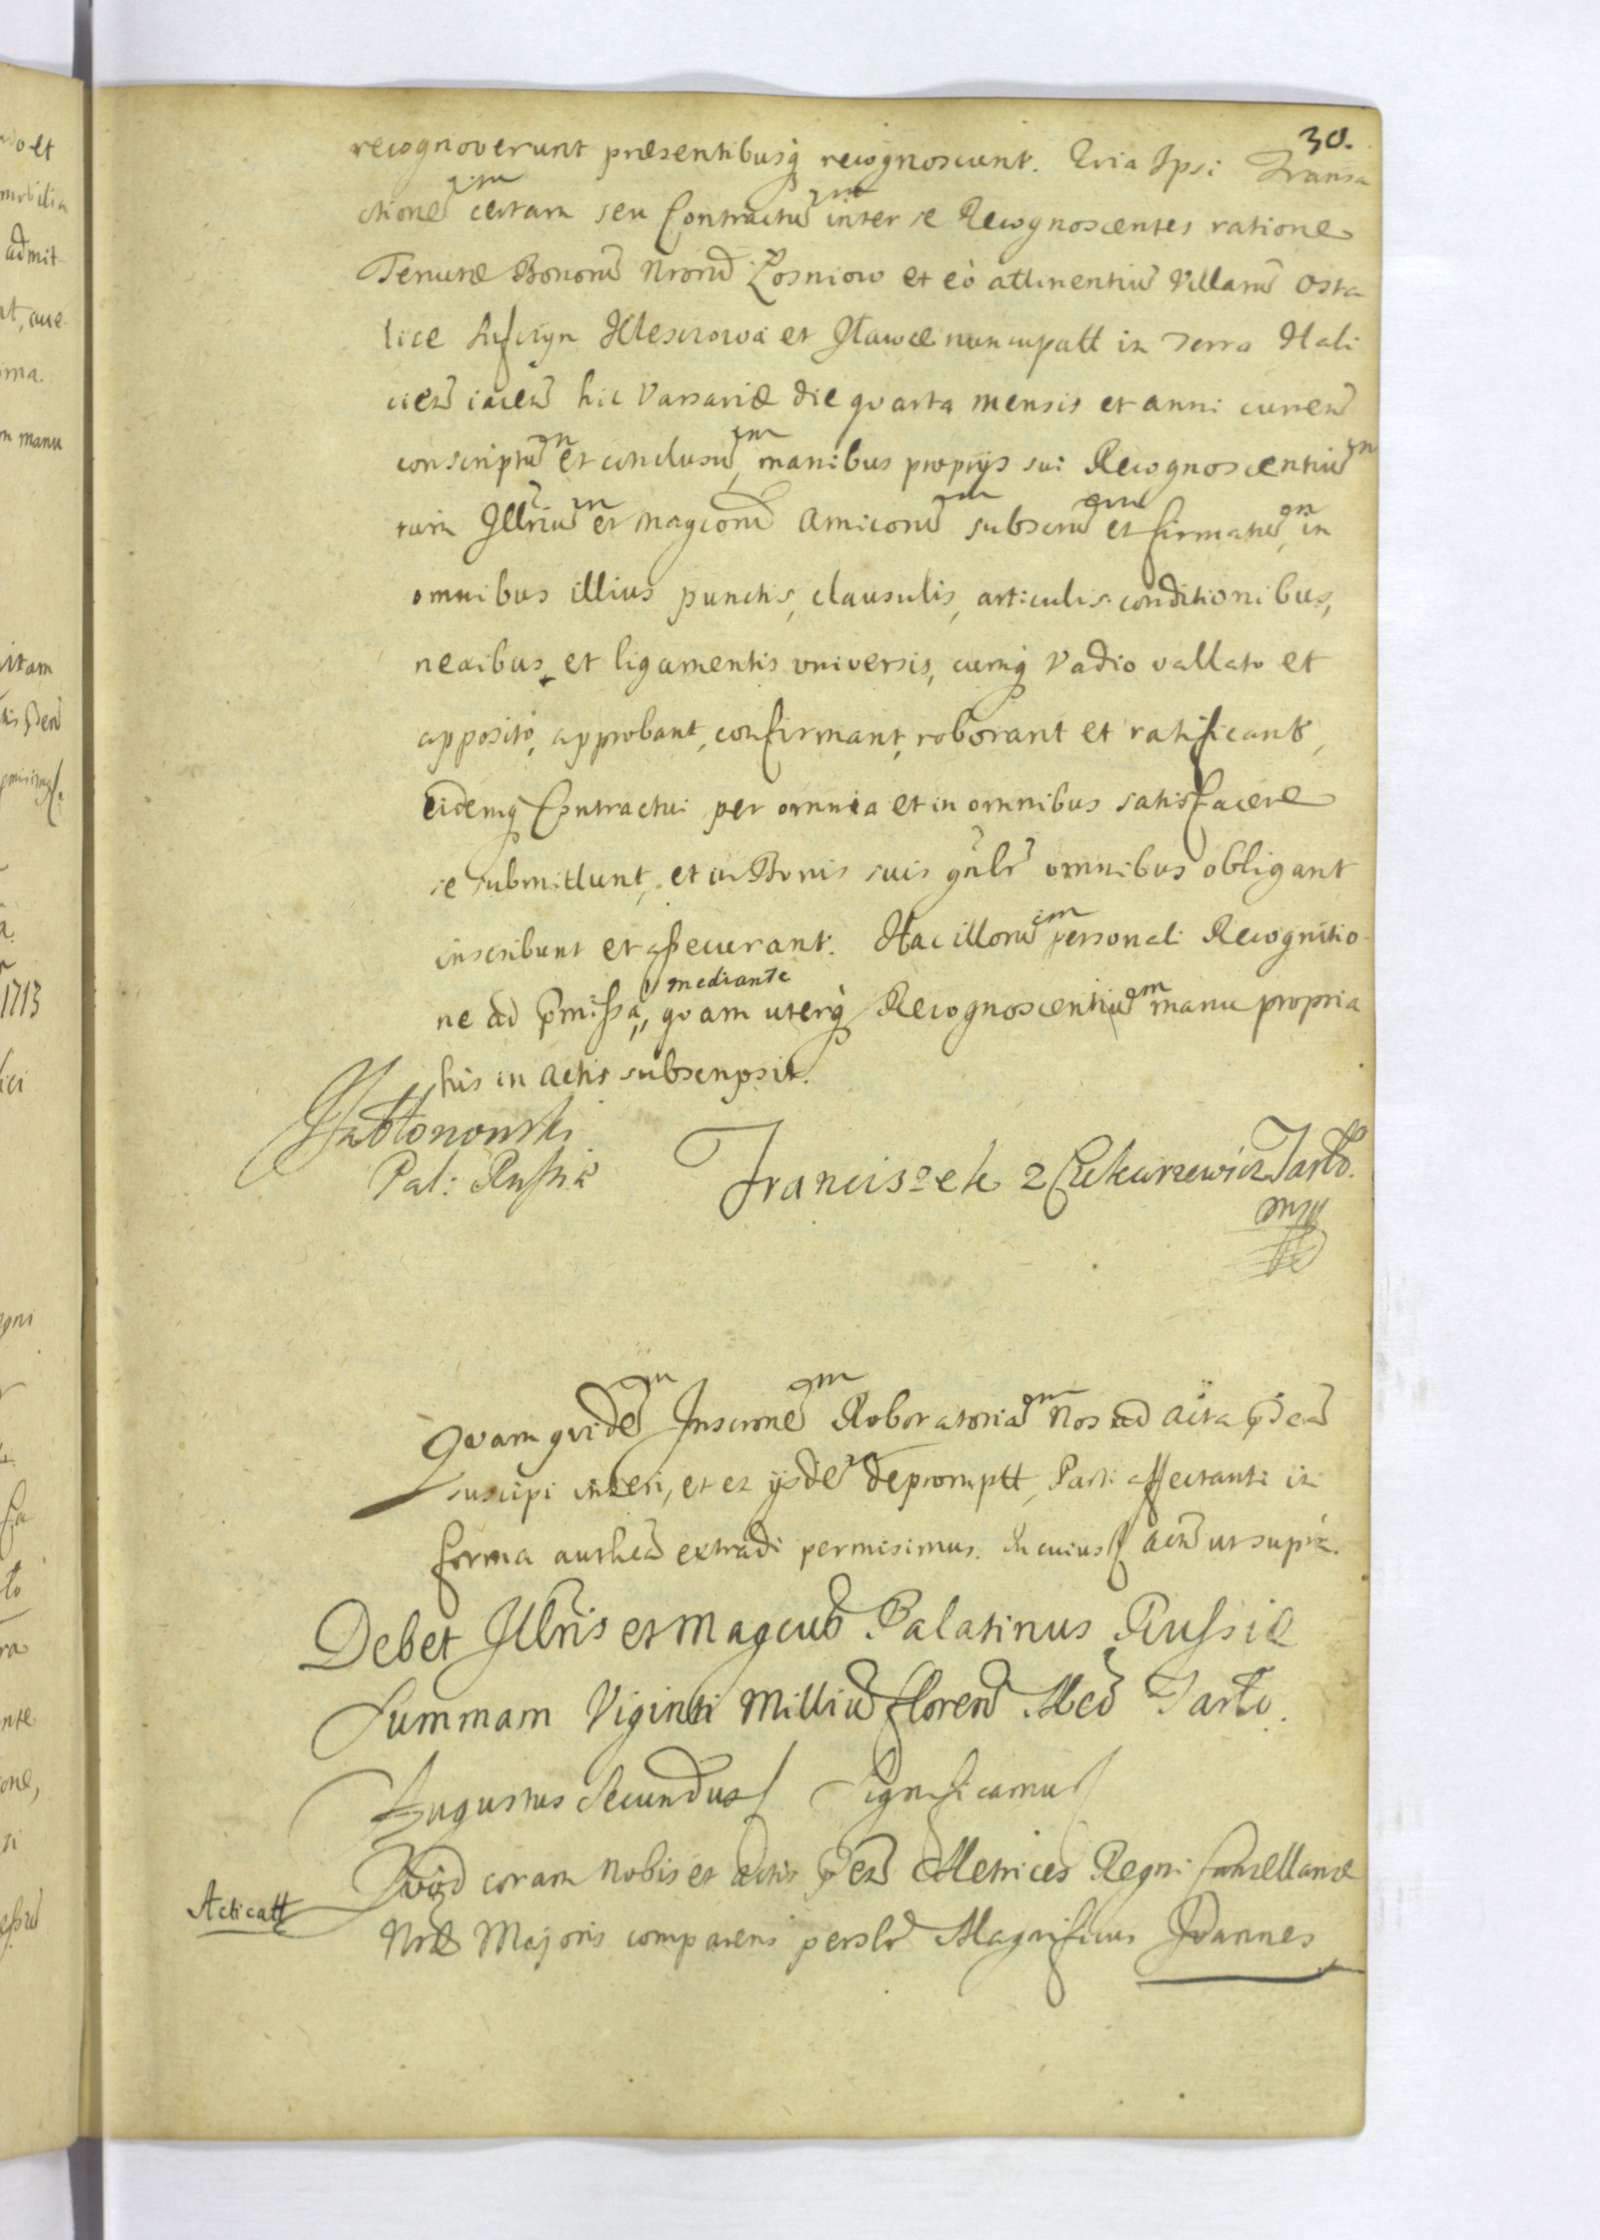 30.
recognoverunt præsentibusq recognoscunt. Qvia Ipsi Transa
ctionem certam seu Contractum inter se Recognoscentes ratione
Tenutæ Bonorum Nrorum Łosniow et eò attinentium Villarum Osta
lice et Iławcze nuncupatt in Terra Hali
cien iacen hic Varsaviæ die qvarta mensis et anni curren
conscriptum et conclusum, manibus proprys sui Recognoscentium
tum Illrium et Magcorum Amicorum subscrum et firmatum, in
omnibus illius punctis, clausulis, articulis conditionibus,
nexibus, et ligamentis universis, cumq Vadio vallato et
apposito, approbant, confirmant, roborant et ratificant,
eidemq Contractui per omnia et in omnibus satisfacere
se submittunt, et in Bonis suis gnlr omnibus obligant
inscribunt et assecurant. Hac illorum personali Recognitio-
ne ad pmissa, mediante qvam uterq Recognoscentium manu propria
his in actis subscripsit.
Jabłonowski
Pal: Russiæ
Franciszek z Czekarzewicz Tarło.
mpp
Qvam qvidem Inscrionem Roboratoriam Nos ad acta pden
suscipi inseri, et ex ysdem depromptt, Parti affectanti in
forma authen extradi permisimus. In cuius actum ut supra.
Debet Illris et Magcus Palatinus Russiæ
Summam Viginti Millium floren Tarło.
Augustus Secundus Significamus
Qvod coram Nobis et actis pen Metrices Regni Cancellariæ
Acticatt
Nræ Majoris comparens perslr Magnificus Joannes